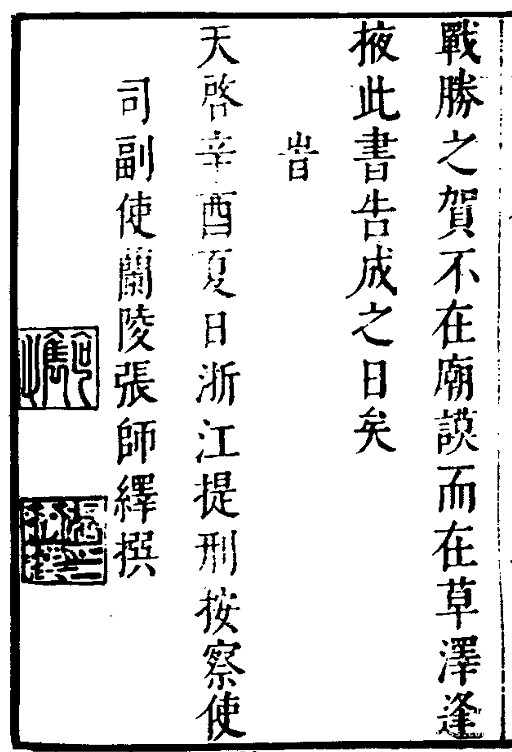 戰勝之賀不在廟謨而在草澤逢
掖此書告成之日矣
旹
天啓辛酉夏日浙江提刑按察使
司副使蘭陵張師繹撰